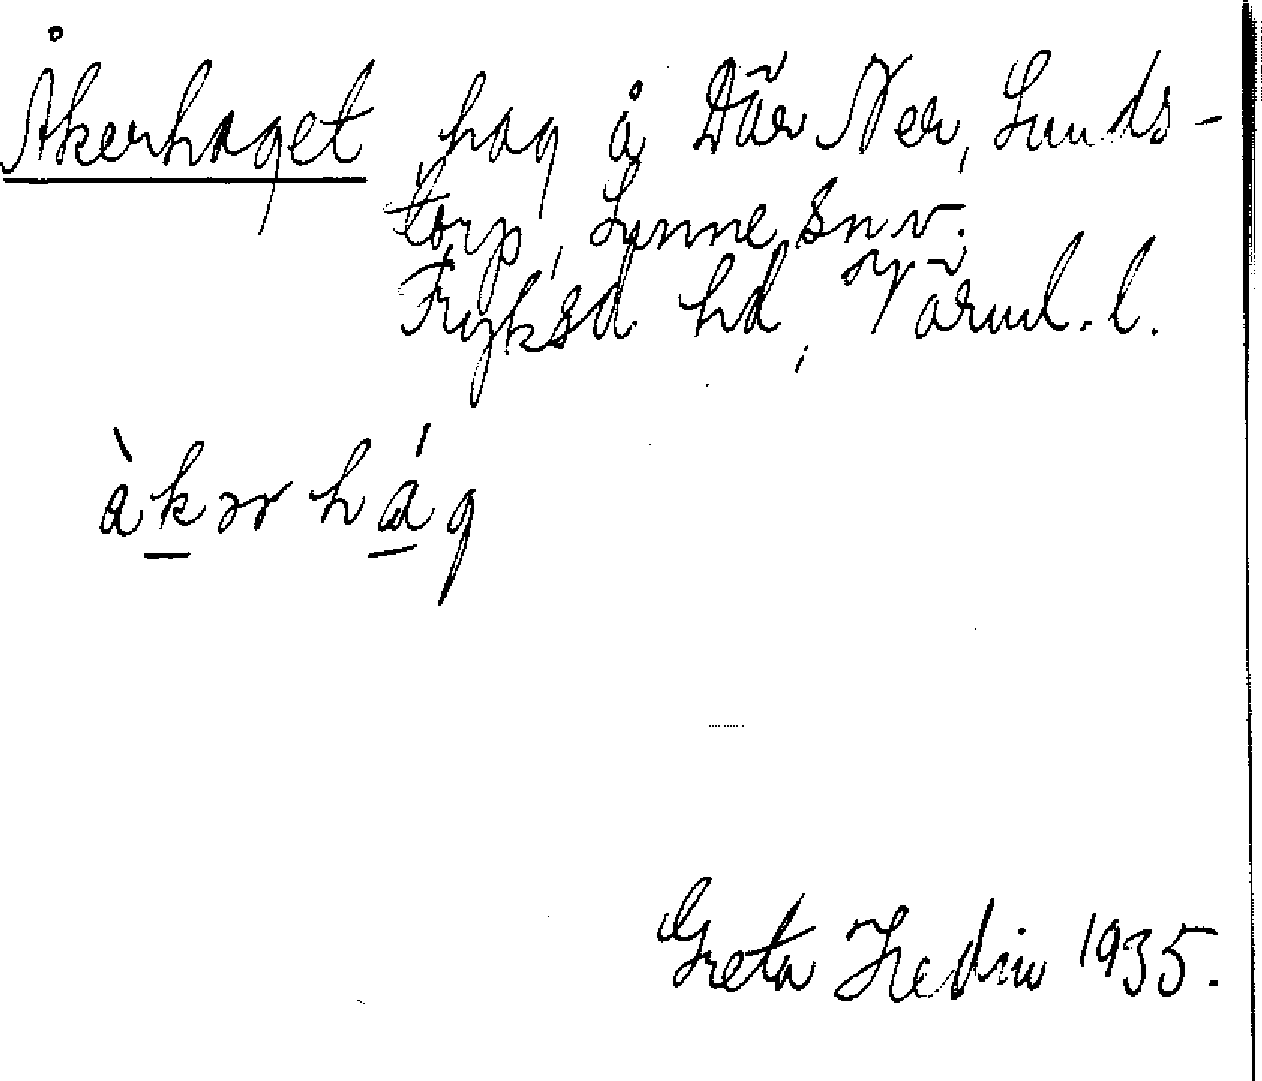 Åkerhaget hag å Där Ner, Lunds-
torp, Sunne sn v.
Fryksd hd, Värml. l.
àkər hág
Greta Hedin 1935.